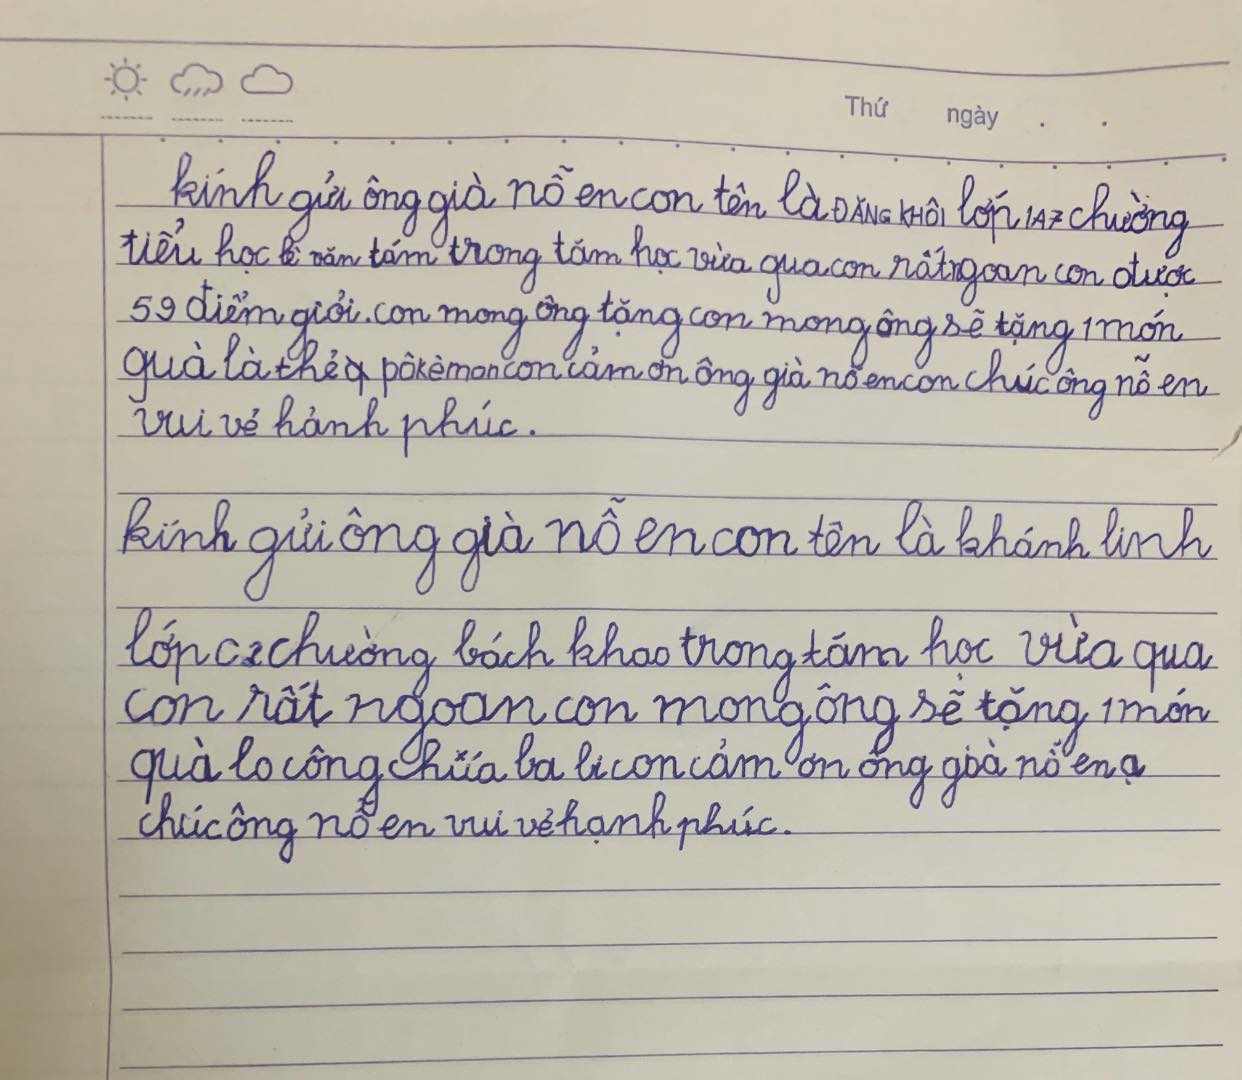 Thứ ngày . .
kính gửi ông già nỗ en con tên là ĐĂNG KHÔI lớp 1A7 chường
tiểu học lê văn tám trong tăm học vừa qua con rất ngoan con được
59 điểm giỏi. con mong ông tặng con mong ông sẽ tặng 1 món
quà là thẻ pôkèmon con cảm ơn ông già nỗ en con chúc ông nỗ en
vui vẻ hảnh phúc.
kính gửi ông già nỗ en con tên là khánh linh
lớp c2 chường bách khao trong tăm học vừa qua
con rất ngoan con mong ông sẽ tặng 1 món
quà lo công chứa ba li con cảm ơn ông già nỗ en ạ
chúc ông nỗ en vui vẻ hạnh phúc.